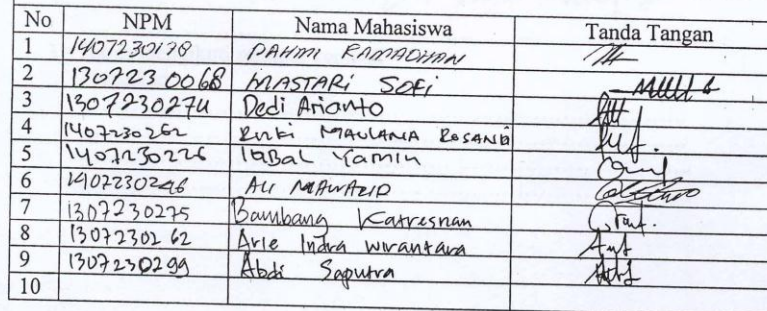 No NPM Nama Mahasiswa Tanda Tangan
1 1407230178 PAHMI RAMADHAN
2 1307230068 MASTARI SOFI
3 1307230274 Dedi Arianto
4 1407230262 RIZKI MAULANA ROSANDI
5 1407230226 IQBAL YAMIN
6 1407230246 ALI MAWAZID
7 1307230275 Bambang Katresnan
8 1307230262 Arie Indra wirantara
9 1307230299 Abdi Saputra
10